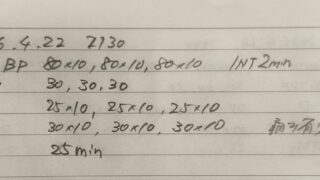 .4.22 7130
BP 80×10, 80×10, 80×10 INT 2min
30, 30, 30
25×10, 25×10, 25×10
30×10, 30×10, 30×10
25min